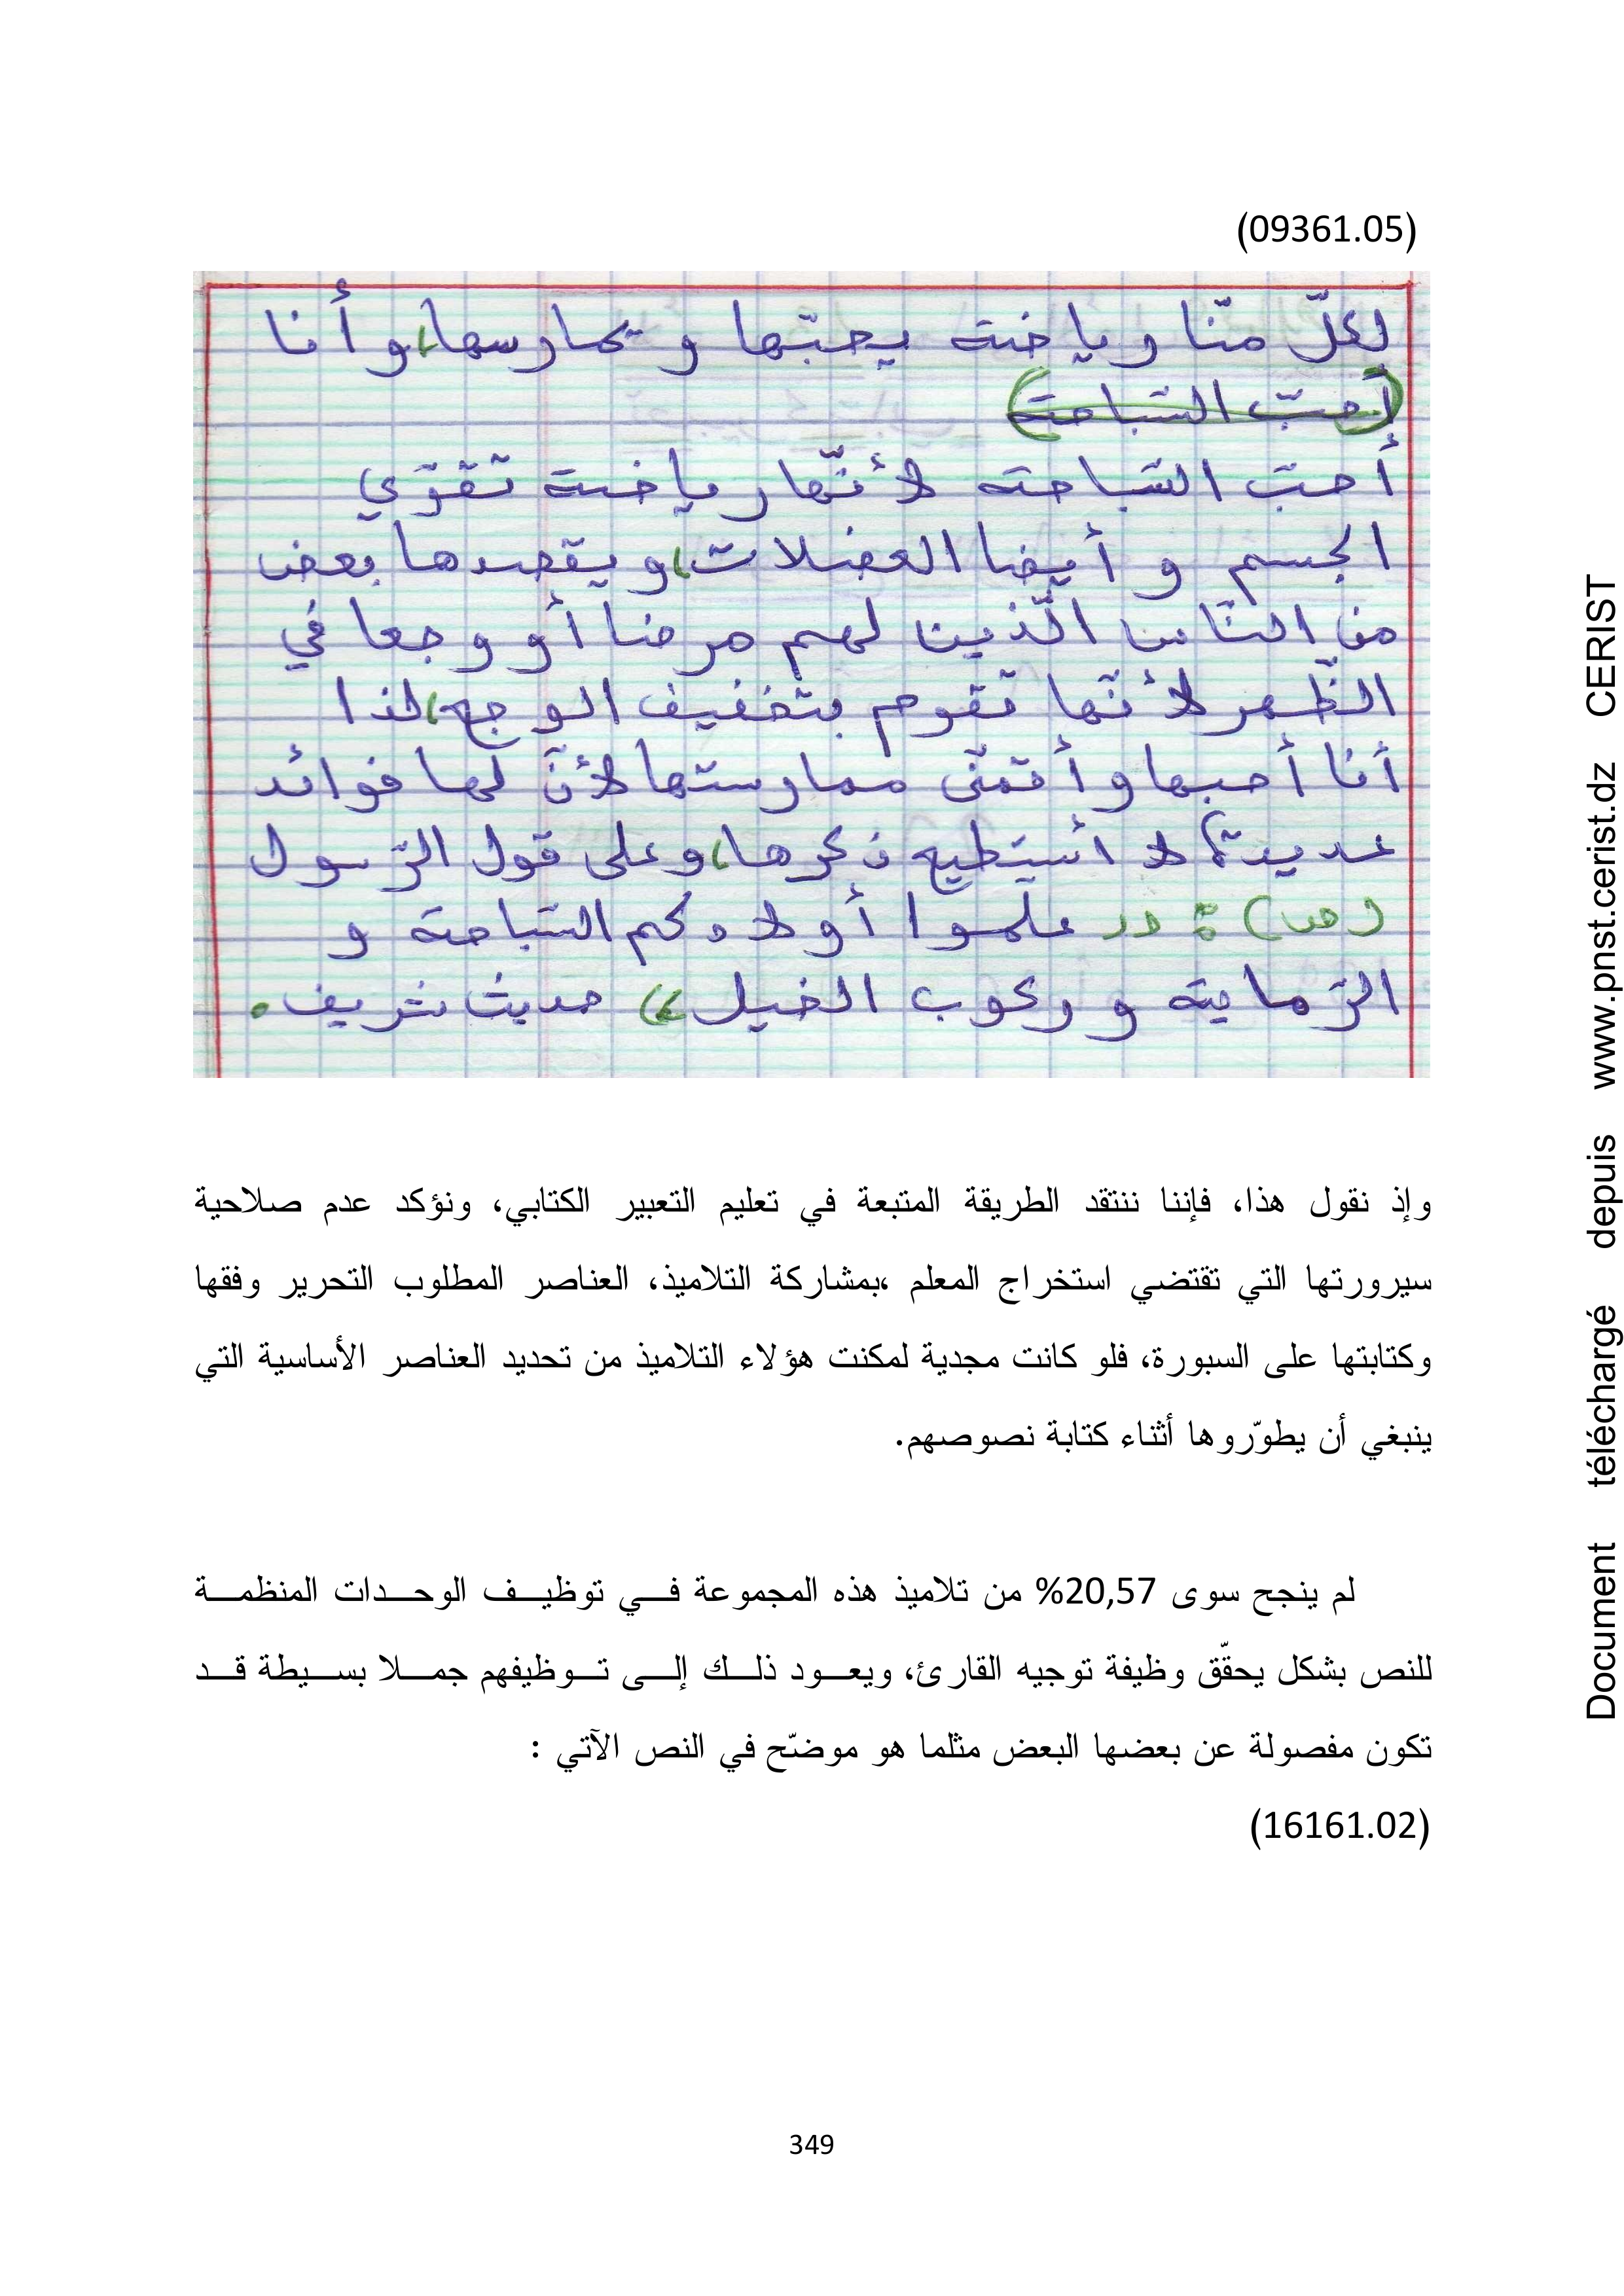 (09361.05)
لكلّ منّا رياضة يحبّها و يمارسها، و أنا
(أحبّ السّباحة)
أحبّ السّباحة لأنّها رياضة تقوّي
الجسم و أيضا العضلات، و يقصدها بعض
من النّاس الّذين لهم مرضا أو وجعا في
الظّهر لأنّها تقوم بتخفيف الوجع، لذا
أنا أحبها و أتمنّى ممارستها لأنّ لها فوائد
عديدة، لا أستطيع ذكرها، و على قول الرّسول
(ص) : " علموا أولادكم السّباحة و
الرّماية و ركوب الخيل " حديث شريف.
وإذ نقول هذا، فإننا ننتقد الطريقة المتبعة في تعليم التعبير الكتابي، ونؤكد عدم صلاحية
سيرورتها التي تقتضي استخراج المعلم ،بمشاركة التلاميذ، العناصر المطلوب التحرير وفقها
وكتابتها على السبورة، فلو كانت مجدية لمكنت هؤلاء التلاميذ من تحديد العناصر الأساسية التي
ينبغي أن يطوّروها أثناء كتابة نصوصهم.
لم ينجح سوى 20,57% من تلاميذ هذه المجموعة فــي توظيــف الوحــدات المنظمــة
للنص بشكل يحقّق وظيفة توجيه القارئ، ويعــود ذلــك إلــى تــوظيفهم جمــلا بســيطة قــد
تكون مفصولة عن بعضها البعض مثلما هو موضّح في النص الآتي :
(16161.02)
349
Document téléchargé depuis www.pnst.cerist.dz CERIST